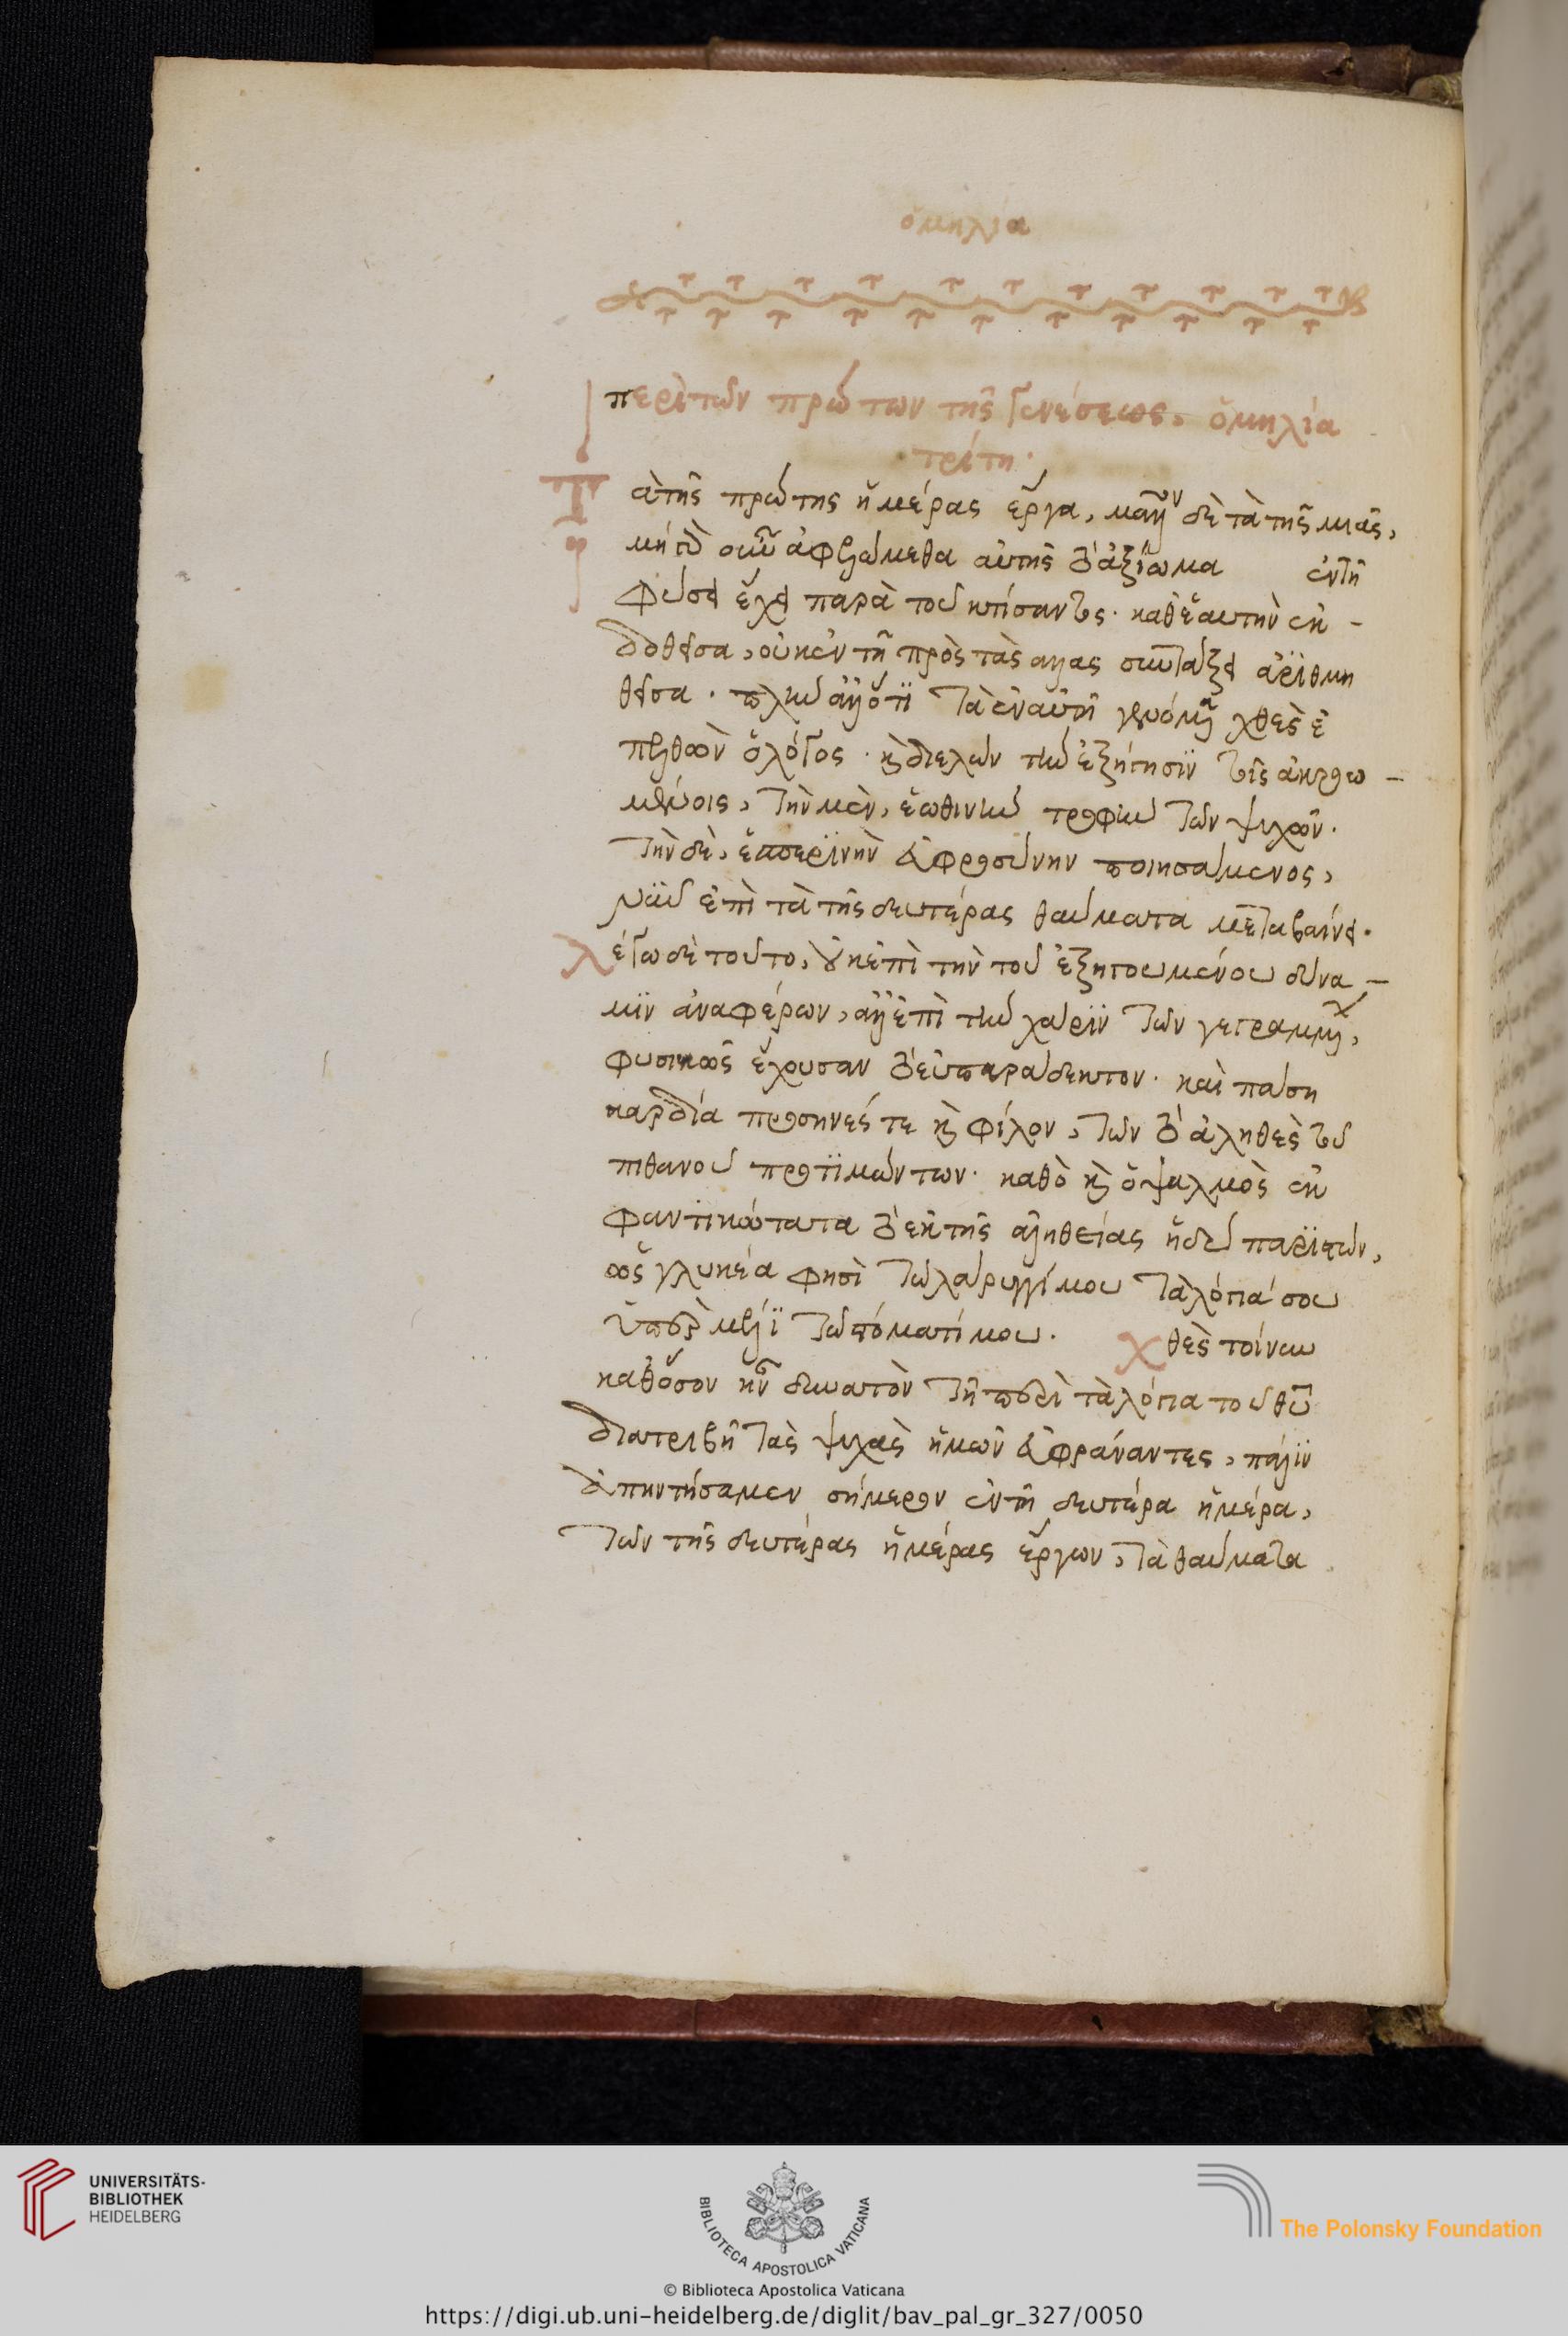 ὁμηλία
περὶ τῶν πρώτων τῆς γενέσεως, ὁμηλία
τρίτη·
Τὰ τῆς πρώτης ἡμέρας ἔργα, μᾶλλον δὲ τὰ τῆς μιᾶς,
μή τὸ οὖν ἀφελώμεθα αὐτῆς τὸ ἀξίωμα ἐν τῆ
φύσει ἔχει παρὰ τοῦ κτίσαντος· καθ' ἑαυτὴν ἐκ-
δοθεῖσα, οὐκ ἐν τῆ πρὸς τὰς αλλας συντάξει ἀρϊθμη
θεῖσα· πλὴν ἀλλ' ὅτϊ τὰ ἐν αὐτῆ γενόμενα χθὲς ἐ
πελθὼν ὁ λόγος· καὶ διελὼν τὴν ἐξήγησϊν τοῖς ἀκροω-
μένοις, τὴν μὲν, ἑωθινὴν τροφὴν τῶν ψυχῶν·
τὴν δὲ, ἑσπερϊνὴν εὐφροσύνην ποιησάμενος,
νῦν ἐπὶ τὰ τῆς δευτέρας θαύματα μεταβαίνει·
λέγω δὲ τοῦτο, οὐκ ἐπὶ τὴν τοῦ ἐξηγουμένου δύνα-
μϊν ἀναφέρων, ἀλλ' ἐπὶ τὴν χάρϊν τῶν γεγραμμένων,
φυσικῶς ἔχουσαν τὸ εὐπαράδεκτον· καὶ πάση
καρδία προσηνές τε καὶ φίλον, τῶν τὸ ἀληθὲς τοῦ
πιθανοῦ προτϊμώντων· καθὸ καὶ ὁ ψαλμὸς ἐκ
φαντικώτατα τὸ ἐκ τῆς ἀληθείας ἡδὺ παρϊστῶν,
ὡς γλυκέα φησὶ τῶ λάρυγγί μου τὰ λόγιά σου
ὑπὲρ μέλϊ τῶ στόματί μου· χθὲς τοίνυν
καθόσον ἦν δυνατὸν τῆ περὶ τὰ λόγια τοῦ θῦ
διατριβῆ τὰς ψυχὰς ἡμῶν εὐφράναντες, πάλϊν
ἀπηντήσαμεν σήμερον ἐν τῆ δευτέρα ἡμέρα,
τῶν τῆς δευτέρας ἡμέρας ἔργων, τὰ θαύματα
UNIVERSITÄTS-
BIBLIOTHEK
HEIDELBERG
BIBLIOTECA APOSTOLICA VATICANA
The Polonsky Foundation
© Biblioteca Apostolica Vaticana
https://digi.ub.uni-heidelberg.de/diglit/bav_pal_gr_327/0050